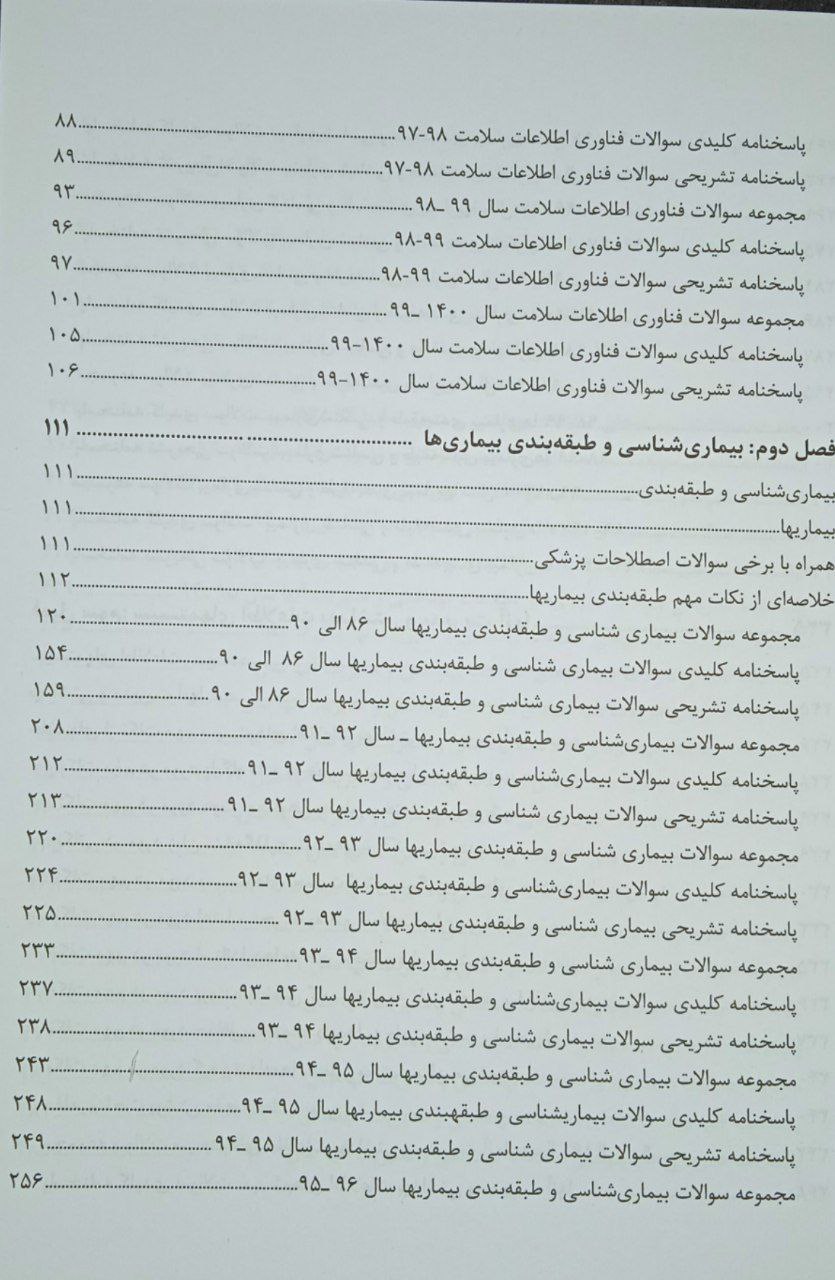 پاسخنامه کلیدی سوالات فناوری اطلاعات سلامت ۹۸-۹۷...................۸۸
پاسخنامه تشریحی سوالات فناوری اطلاعات سلامت ۹۸-۹۷...................۸۹
مجموعه سوالات فناوری اطلاعات سلامت سال ۹۹ ـ۹۸...................۹۳
پاسخنامه کلیدی سوالات فناوری اطلاعات سلامت ۹۹-۹۸...................۹۶
پاسخنامه تشریحی سوالات فناوری اطلاعات سلامت ۹۹-۹۸...................۹۷
مجموعه سوالات فناوری اطلاعات سلامت سال ۱۴۰۰ ـ۹۹...................۱۰۱
پاسخنامه کلیدی سوالات فناوری اطلاعات سلامت سال ۱۴۰۰-۹۹...................۱۰۵
پاسخنامه تشریحی سوالات فناوری اطلاعات سلامت سال ۱۴۰۰-۹۹...................۱۰۶
فصل دوم: بیماری‌شناسی و طبقه‌بندی بیماری‌ها ................... ۱۱۱
بیماری‌شناسی و طبقه‌بندی...................۱۱۱
بیماریها...................۱۱۱
همراه با برخی سوالات اصطلاحات پزشکی...................۱۱۱
خلاصه‌ای از نکات مهم طبقه‌بندی بیماریها...................۱۱۲
مجموعه سوالات بیماری شناسی و طبقه‌بندی بیماریها سال ۸۶ الی ۹۰...................۱۲۰
پاسخنامه کلیدی سوالات بیماری شناسی و طبقه‌بندی بیماریها سال ۸۶ الی ۹۰...................۱۵۴
پاسخنامه تشریحی سوالات بیماری شناسی و طبقه‌بندی بیماریها سال ۸۶ الی ۹۰...................۱۵۹
مجموعه سوالات بیماری‌شناسی و طبقه‌بندی بیماریها ـ سال ۹۲ ـ۹۱...................۲۰۸
پاسخنامه کلیدی سوالات بیماری‌شناسی و طبقه‌بندی بیماریها سال ۹۲ ـ۹۱...................۲۱۲
پاسخنامه تشریحی سوالات بیماری شناسی و طبقه‌بندی بیماریها سال ۹۲ ـ۹۱...................۲۱۳
مجموعه سوالات بیماری شناسی و طبقه‌بندی بیماریها سال ۹۳ ـ۹۲...................۲۲۰
پاسخنامه کلیدی سوالات بیماری‌شناسی و طبقه‌بندی بیماریها سال ۹۳ ـ۹۲...................۲۲۴
پاسخنامه تشریحی بیماری شناسی و طبقه‌بندی بیماریها سال ۹۳ ـ۹۲...................۲۲۵
مجموعه سوالات بیماری شناسی و طبقه‌بندی بیماریها سال ۹۴ ـ۹۳...................۲۳۳
پاسخنامه کلیدی سوالات بیماری‌شناسی و طبقه‌بندی بیماریها سال ۹۴ ـ۹۳...................۲۳۷
پاسخنامه تشریحی سوالات بیماری شناسی و طبقه‌بندی بیماریها ۹۴ ـ۹۳...................۲۳۸
مجموعه سوالات بیماری شناسی و طبقه‌بندی بیماریها سال ۹۵ ـ۹۴...................۲۴۳
پاسخنامه کلیدی سوالات بیماریشناسی و طبقهبندی بیماریها سال ۹۵ ـ۹۴...................۲۴۸
پاسخنامه تشریحی سوالات بیماری شناسی و طبقه‌بندی بیماریها سال ۹۵ ـ۹۴...................۲۴۹
مجموعه سوالات بیماری‌شناسی و طبقه‌بندی بیماریها سال ۹۶ ـ۹۵...................۲۵۶